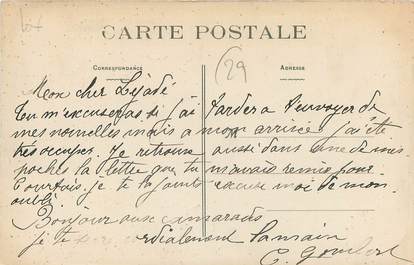 CARTE POSTALE
CORRESPONDANCE
ADRESSE
(29
Mon cher
Tu m'excuseras si j'ai tarder a t'envoyer de
mes nouvelles mais a mon arrivée j'ai été
très occuper. Je retrouve aussi dans une de mes
poches la lettre que tu m'avais remis pour
je te joints excuse moi de mon
oubli.
Bonjour aux camarades
je te cordialement la main